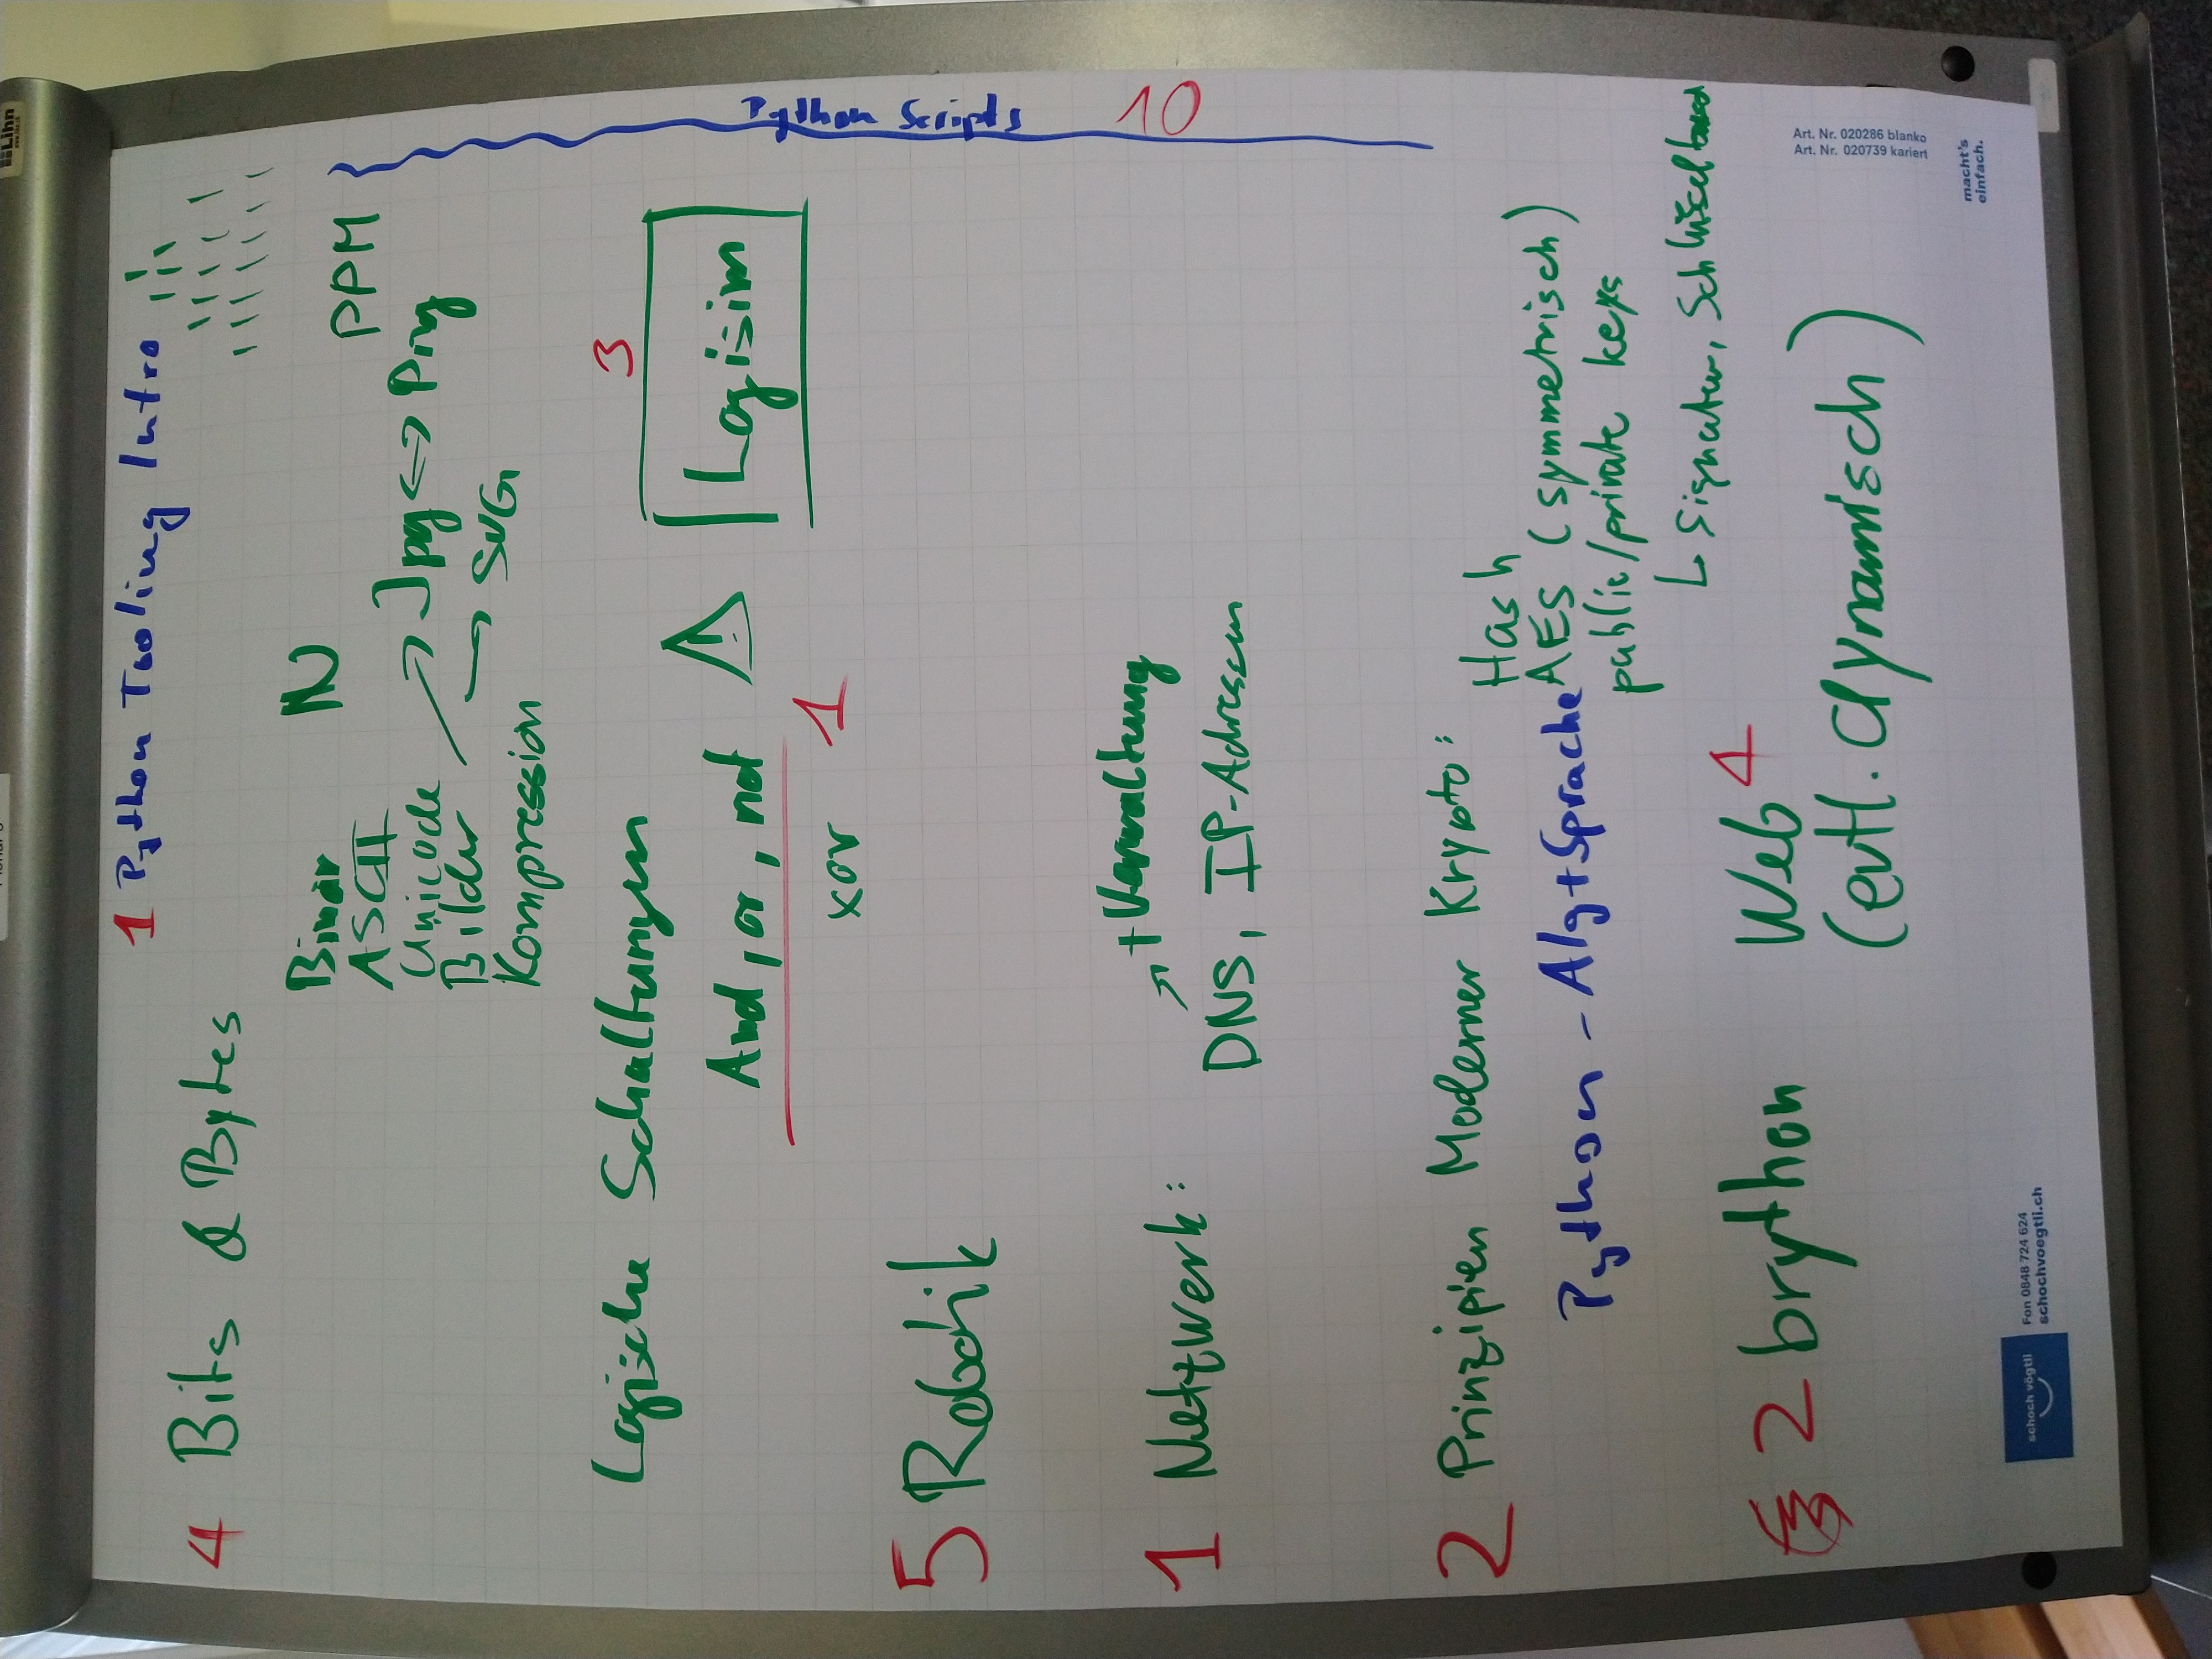 1 Python Tooling Intro
4 Bits & Bytes
Binär IN
ASCII
Unicode
Bilder → Jpg ↔ Png PPM
→ SVG
Kompression
Python Scripts 10
Logische Schaltungen 3
And, or, not ⚠ [Logisim
xor 1
5 Robotik
1 Netzwerk: + Verwaltung
DNS, IP-Adressen
2 Prinzipien Moderner Krypto: Hash
AES (symmetrisch)
public/private keys
↳ Signatur,
Python - Alg+Sprache
2 brython Web 4
(evtl. dynamisch)
schoch vögtli
Fon 0848 724 624
schochvoegtli.ch
Art. Nr. 020286 blanko
Art. Nr. 020739 kariert
macht's
einfach.
Lihn